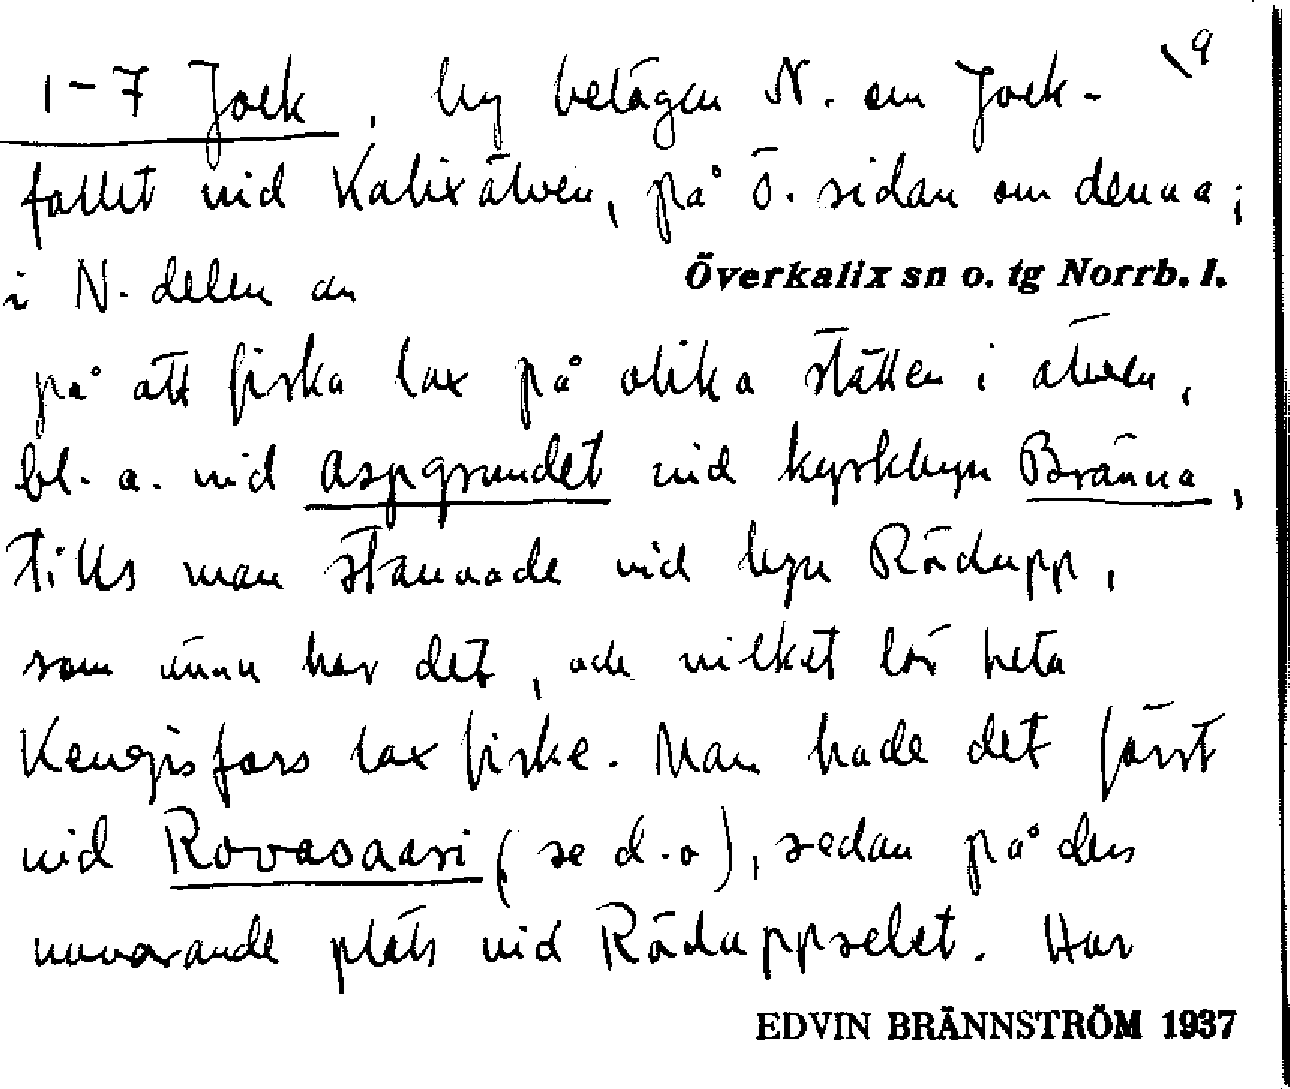 19
1-7 Jock, by belägen N. om Jock-
fallet vid Kalixälven, på Ö. sidan om denna;
i N. delen av Överkalix sn o. tg Norrb. l.
på att fiska lax på olika ställen i älven,
bl. a. vid Aspgrundet vid kyrkbyn Bränna,
tills man stannade vid byn Rödupp,
som ännu har det, och vilket lär heta
Kengisfors laxfiske. Man hade det först
vid Rovasaari (se d.o), sedan på den
nuvarande plats vid Röduppselet. Har
EDVIN BRÄNNSTRÖM 1937